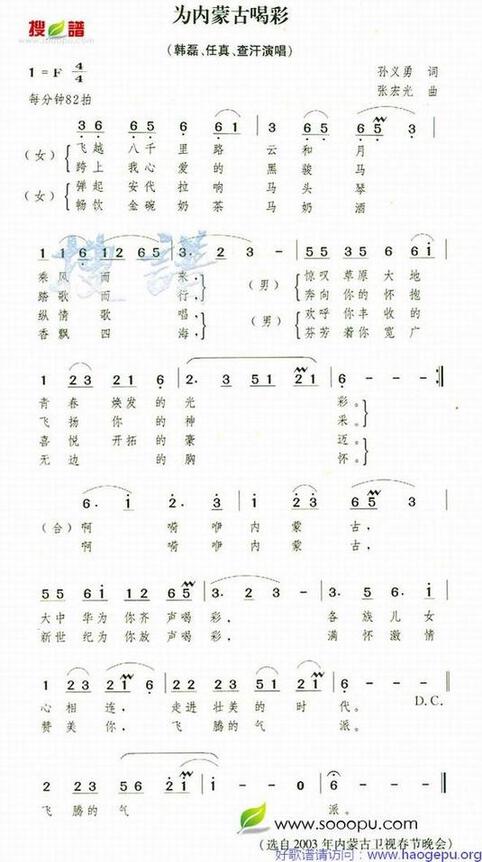 搜谱
为内蒙古喝彩
(韩磊、任真、查汗演唱)
1=F 4/4
孙义勇 词
每分钟82拍
张宏光 曲
3 6 6 5 6 6 1 | 3 6 5 6 6 5 3
(女) 飞越 八千 里路 云和月
跨上 我心 爱的 黑骏马
(女) 弹起 安代 拉响 马头琴
畅饮 金碗 奶茶 马奶酒
1 1 6 1 2 6 5 | 3. 2 3 - | 5 5 3 5 5 6 6 i
乘风而来, (男) 惊叹草原大地
踏歌而行, 奔向你的怀抱
纵情歌唱, (男) 欢呼你丰收的
香飘四海, 芬芳着你宽广
1 2 3 2 2 1 6 | 2. 3 5 5 1 2 1 | 6 - - - :||
青春焕发的光彩。
飞扬你的神采。
喜悦开拓的豪迈。
无边的胸怀。
6. i 2 - | 2. 3 2 - | 1 2 3 6 5 3
(合) 啊 嗬咿内蒙古,
啊 嗬咿内蒙古,
5 5 6 1 2 6 5 | 3. 2 3 - | 3. 5 6. i
大中华为你齐声喝彩, 各族儿女
新世纪为你放声喝彩, 满怀激情
1 2 3 2 1 6 | 2 3 2 3 5 2 1 | 6 - - - ||
心相连,走进壮美的时代。 D.C.
赞美你,飞腾的气派。
2 3 2 3 5 6 6 | 2 1 i - - | 6 - - - ||
飞腾的气派。
www.sooopu.com
(选自2003年内蒙古卫视春节晚会)
好歌谱请访问:www.haogepu.org